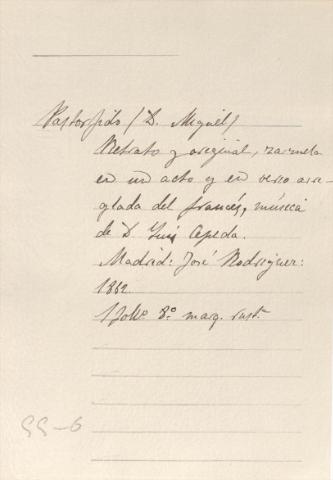 Pastorfido (D. Miguel)
Retrato y original, zarzuela
en un acto y en verso arre-
glada del francés, música
de D. Luis Cepeda.
Madrid: José Rodriguez:
1862
1 foll.º 8.º marq. rust.ª
55-6